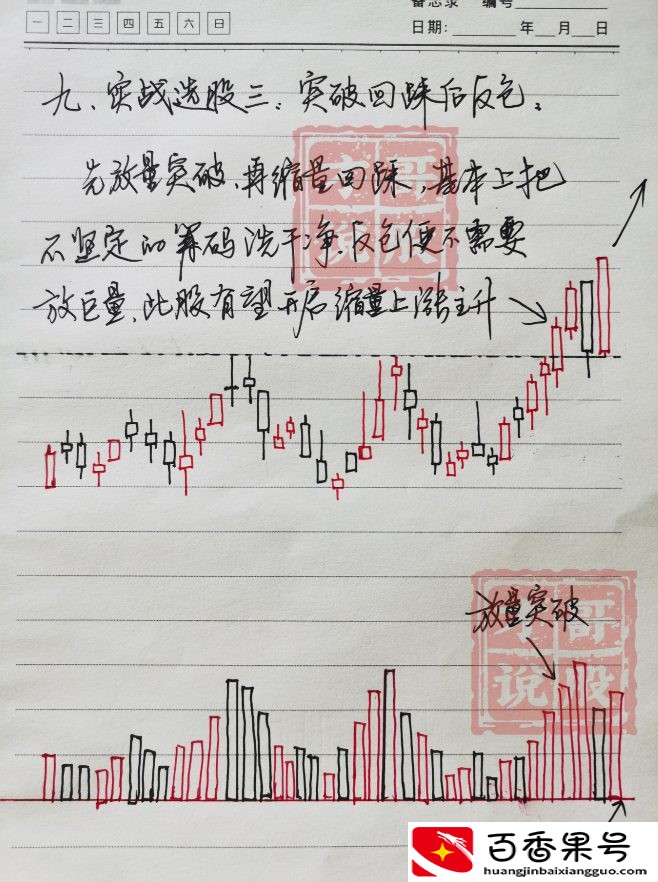 备忘录 编号
一 二 三 四 五 六 日
日期: 年 月 日
九、实战选股三：突破回踩后反包。
先放量突破、再缩量回踩，基本上把
不坚定的筹码洗干净、反包便不需要
放巨量、此股有望开启缩量上涨主升
放量突破
哥
说股
百香果号
huangjinbaixiangguo.com